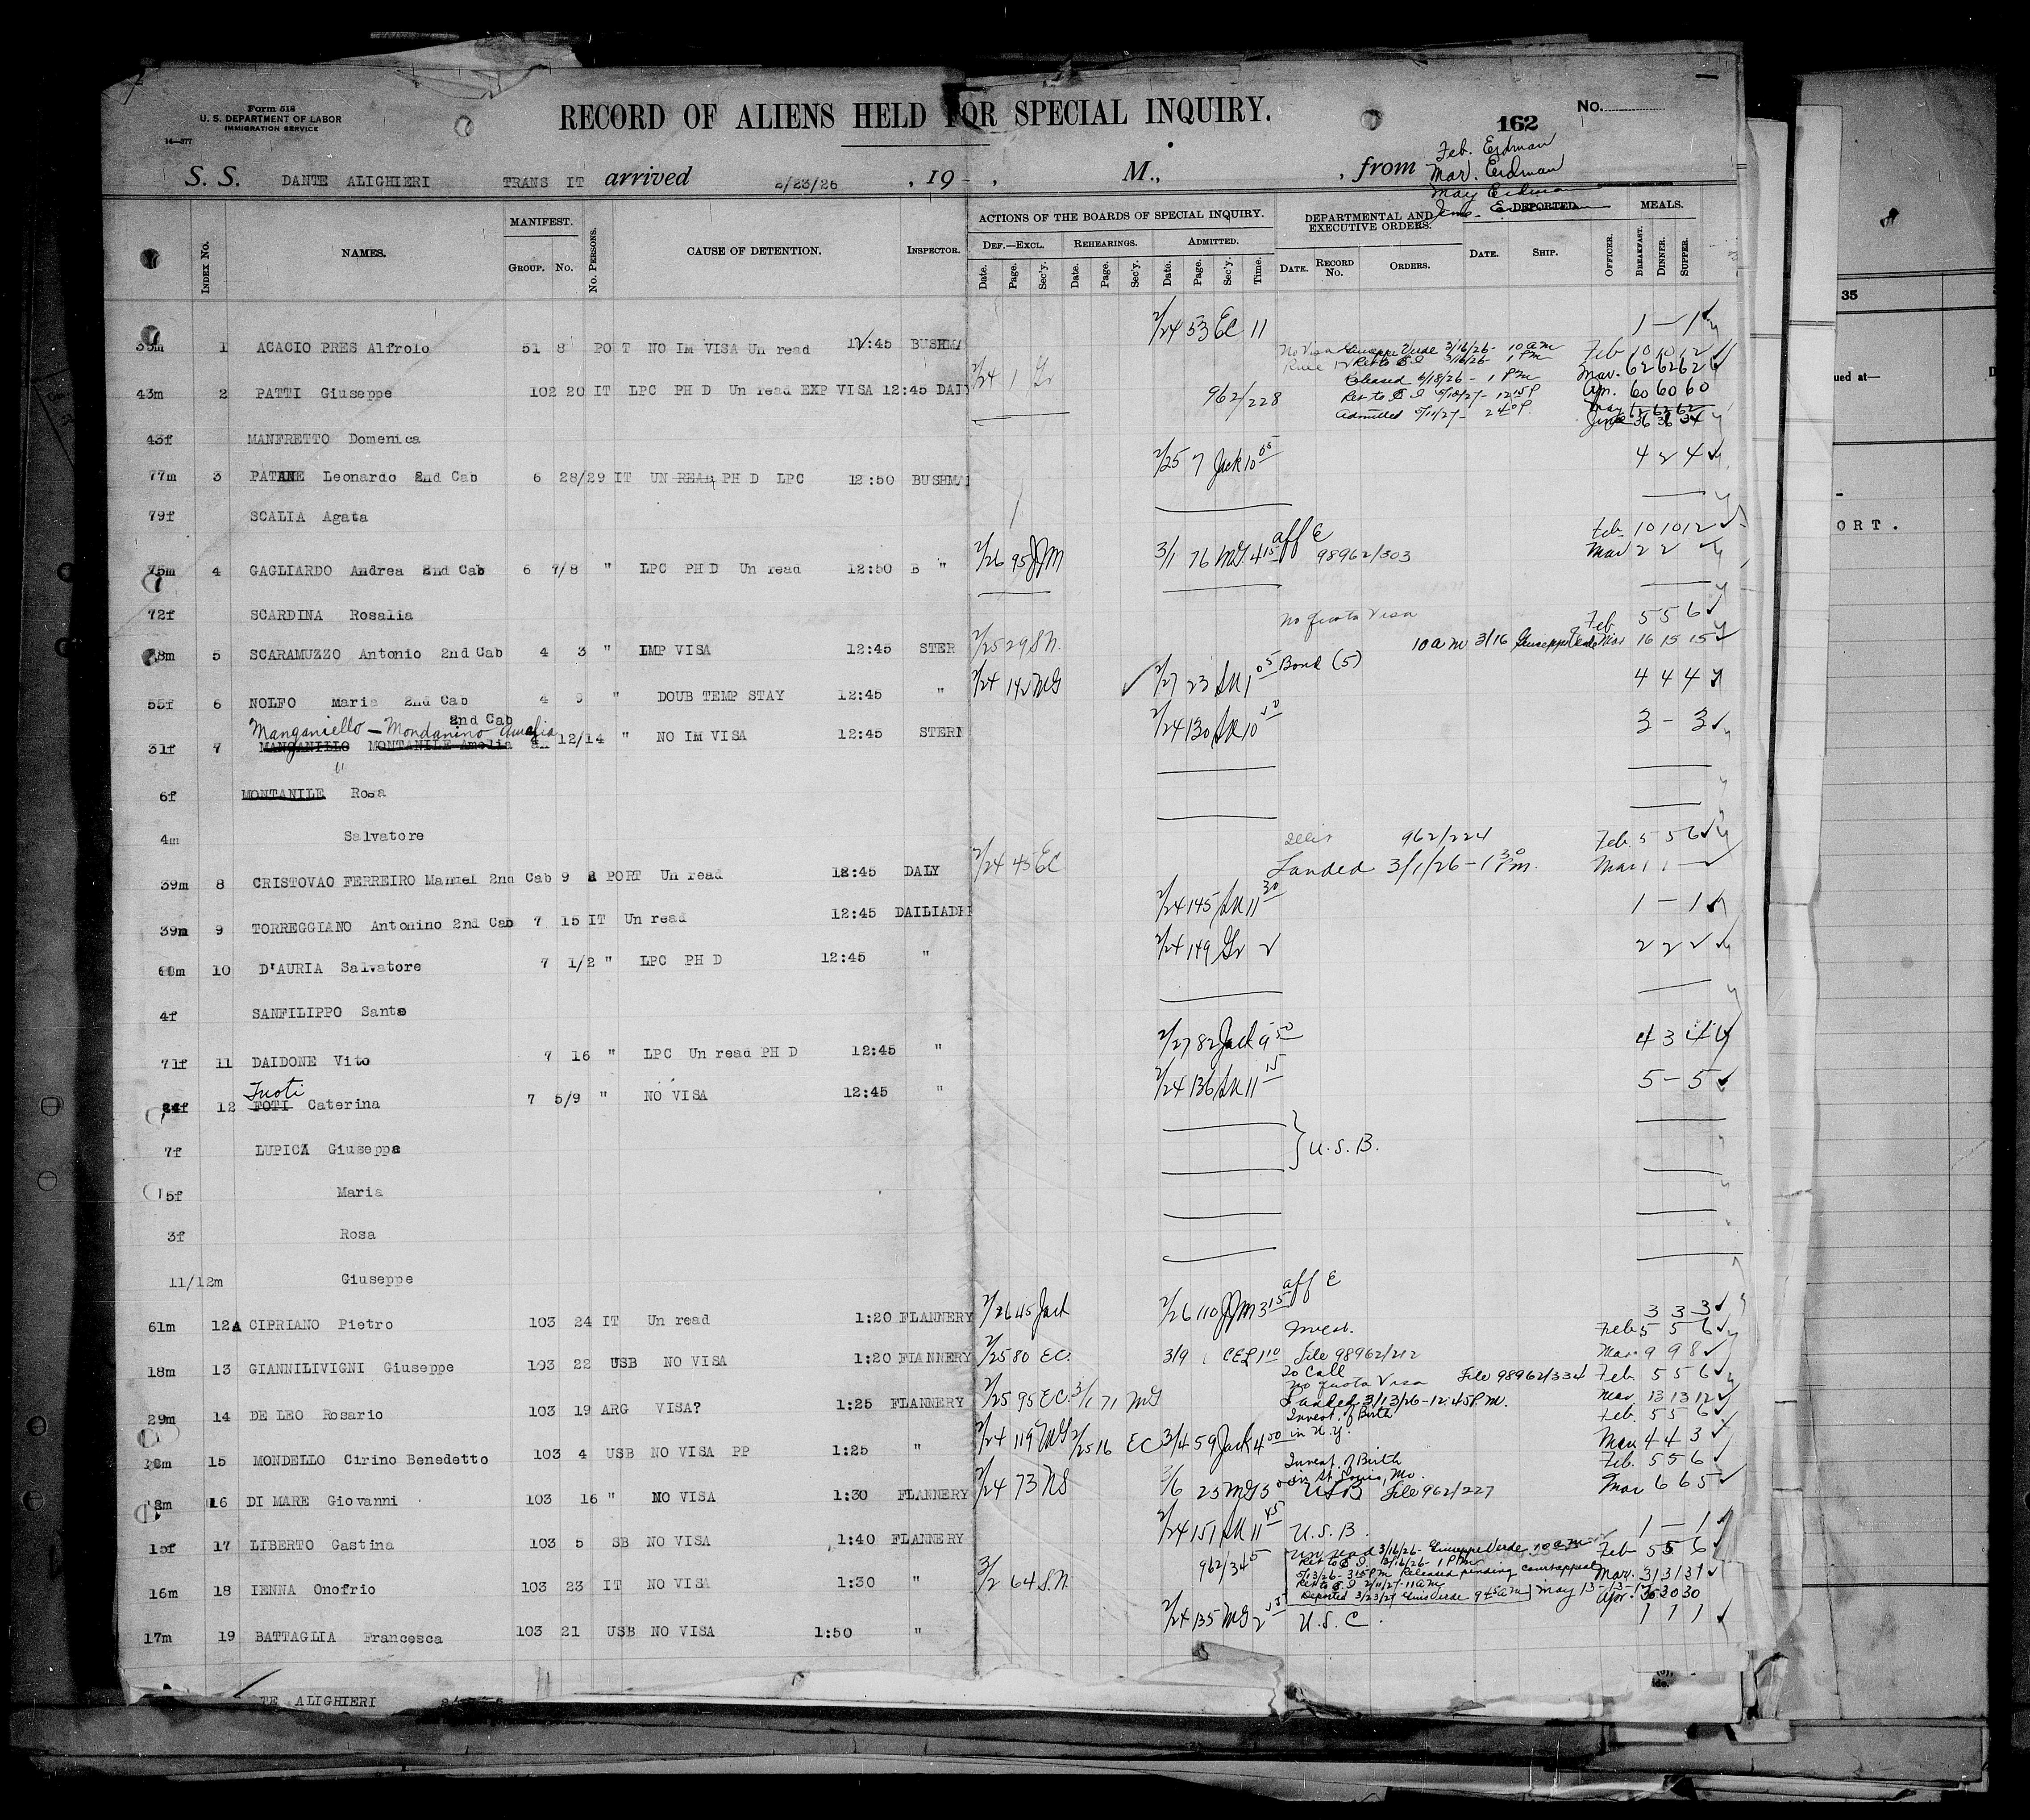 Form 518
U. S. DEPARTMENT OF LABOR
IMMIGRATION SERVICE
16—377
RECORD OF ALIENS HELD FOR SPECIAL INQUIRY.
No.
162
Feb. Erdman
Mar. Erdman
May Erdman
S. S. DANTE ALIGHIERI TRANS IT arrived 2/23/26 , 19 , M., , from
Index No. NAMES. MANIFEST. GROUP. No. No. PERSONS. CAUSE OF DETENTION. INSPECTOR.
ACTIONS OF THE BOARDS OF SPECIAL INQUIRY. DEF.—EXCL. REHEARINGS. ADMITTED.
Date. Page. Sec'y. Date. Page. Sec'y. Date. Page. Sec'y. Time.
DEPARTMENTAL AND EXECUTIVE ORDERS. DATE. RECORD No. ORDERS.
DEPORTED. DATE. SHIP. OFFICER.
MEALS. BREAKFAST. DINNER. SUPPER.
1 ACACIO PRES Alfrolo 51 8 PO T NO IM VISA Un read 12:45 BUSHMA 2/24 53 EC 11 1 — 1
43m 2 PATTI Giuseppe 102 20 IT LPC PH D Un read EXP VISA 12:45 DAIY 2/24 1 962/228
No Visa Giuseppe Verde 3/16/26 - 10 am Feb 10 10 12
Ret to B I 3/16/26 - 1 PM Mar. 62 62 62
Released 6/18/26 - 1 PM Apr. 60 60 60
Admitted May 62 62 62
June 36 36 34
43f MANFRETTO Domenica
77m 3 PATANE Leonardo 2nd Cab 6 28/29 IT UN READ PH D LPC 12:50 BUSHMAN 2/25 7 Jack 10 05 4 2 4
79f SCALIA Agata
75m 4 GAGLIARDO Andrea 2nd Cab 6 7/8 " LPC PH D Un read 12:50 B " 2/26 95 JJM 3/1 76 MG. 4 15 aff E 98962/303 Feb 10 10 12
Mar 2 2
72f SCARDINA Rosalia
No quota Visa Feb. 5 5 6
5 SCARAMUZZO Antonio 2nd Cab 4 3 " IMP VISA 12:45 STER 2/25 29 S.N. 10 am 3/16 Giuseppe Verde Mar 16 15 15
55f 6 NOLFO Maria 2nd Cab 4 9 " DOUB TEMP STAY 12:45 " 2/24 142 MG 2/27 23 SN 1 05 Bond (5) 4 4 4
2nd Cab
Manganiello — Mondanino Amelia
31f 7 MANGANILLO MONTANILE Amelia 4 12/14 " NO IM VISA 12:45 STERN 2/24 130 SN 10 3 - 3
"
6f MONTANILE Rosa
4m Salvatore
39m 8 CRISTOVAO FERREIRO Manuel 2nd Cab 9 PORT Un read 12:45 DALY 2/24 45 EC 962/224 Feb. 5 5 6
Landed 3/1/26 - 1 30 Pm. Mar 1 1 —
39m 9 TORREGGIANO Antonino 2nd Cab 7 15 IT Un read 12:45 2/24 145 SN 11 30 1 — 1
10 D'AURIA Salvatore 7 1/2 " LPC PH D 12:45 " 2/24 149 2 2 2
4f SANFILIPPO Santa
71f 11 DAIDONE Vito 7 16 " LPC Un read PH D 12:45 " 2/27 82 Jack 9 50 4 3 4
Tuoti
12 FOTI Caterina 7 5/9 " NO VISA 12:45 " 2/24 136 SN 11 15 5 — 5
7f LUPICA Giuseppa
U. S. B.
5f Maria
3f Rosa
11/12m Giuseppe
61m 12A CIPRIANO Pietro 103 24 IT Un read 1:20 FLANNERY 2/26 45 Jack 2/26 110 JJM 3 15 aff E 3 3 3
Invest. Feb. 5 5 6
18m 13 GIANNILIVIGNI Giuseppe 103 22 USB NO VISA 1:20 FLANNERY 2/25 80 EC. 3/9 CEL 1 10 File 98962/212 Mar. 9 9 8
To Call
No quota Visa File 98962/334 Feb 5 5 6
29m 14 DE LEO Rosario 103 19 ARG VISA? 1:25 FLANNERY 2/25 95 EC. 3/1 71 MG Landed 3/13/26 - 12:45 P.M. Mar 13 13 12
Invest. of Birth in N.Y. Feb. 5 5 6
15 MONDELLO Cirino Benedetto 103 4 USB NO VISA PP 1:25 " 2/24 119 MG 2/25 16 EC 3/4 59 Jack 4 00 Mar 4 4 3
Invest. of Birth in St. Louis, Mo. Feb. 5 5 6
16 DI MARE Giovanni 103 16 " NO VISA 1:30 FLANNERY 2/24 73 NS 3/6 25 MG 3 USB File 962/227 Mar 6 6 5
15f 17 LIBERTO Gastina 103 5 SB NO VISA 1:40 FLANNERY 2/24 151 SN 11 45 U. S. B. 1 — 1
Un read 3/16/26 - Giuseppe Verde 10 am Feb 5 5 6
Ret to B I. 3/16/26 - 1 PM
16m 18 IENNA Onofrio 103 23 IT NO VISA 1:30 " 3/2 64 S.N. 962/345 5/13/26 - 3:15 PM Released pending court appeal Mar. 31 31 31
Ret to B I 2/11/27 - 11 am May 13 - 13 - 1
Deported 3/23/27 Gius Verde 9 45 am Apr. 30 30 30
17m 19 BATTAGLIA Francesca 103 21 USB NO VISA 1:50 " 2/24 135 MG 2 U. S. C. 1 1 1
TE ALIGHIERI
35
ued at—
ORT.